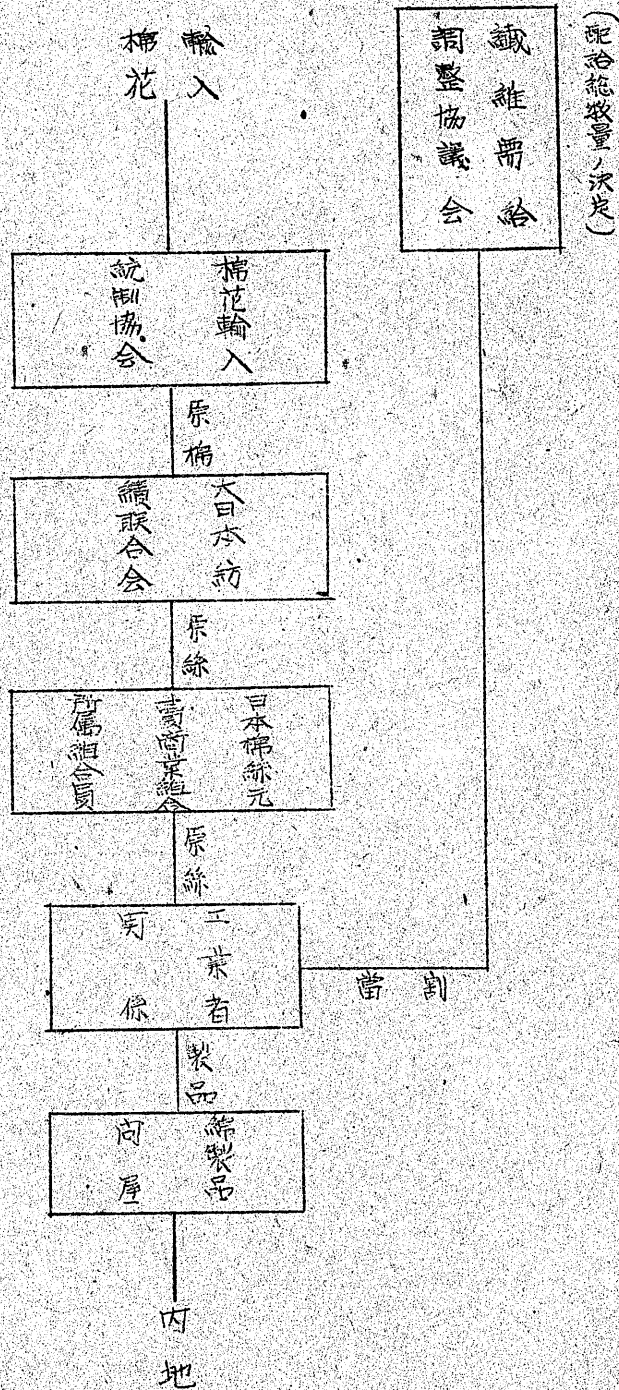 (配給総数量ノ決定)
繊維需給
調整協議会
輸入
棉花
棉花輸入
統制協会
原棉
大日本紡
績联合会
原絲
日本棉絲元
賣商業組合
所属組合員
原絲
工業者
関係
割當
製品
綿製品
问屋
内地